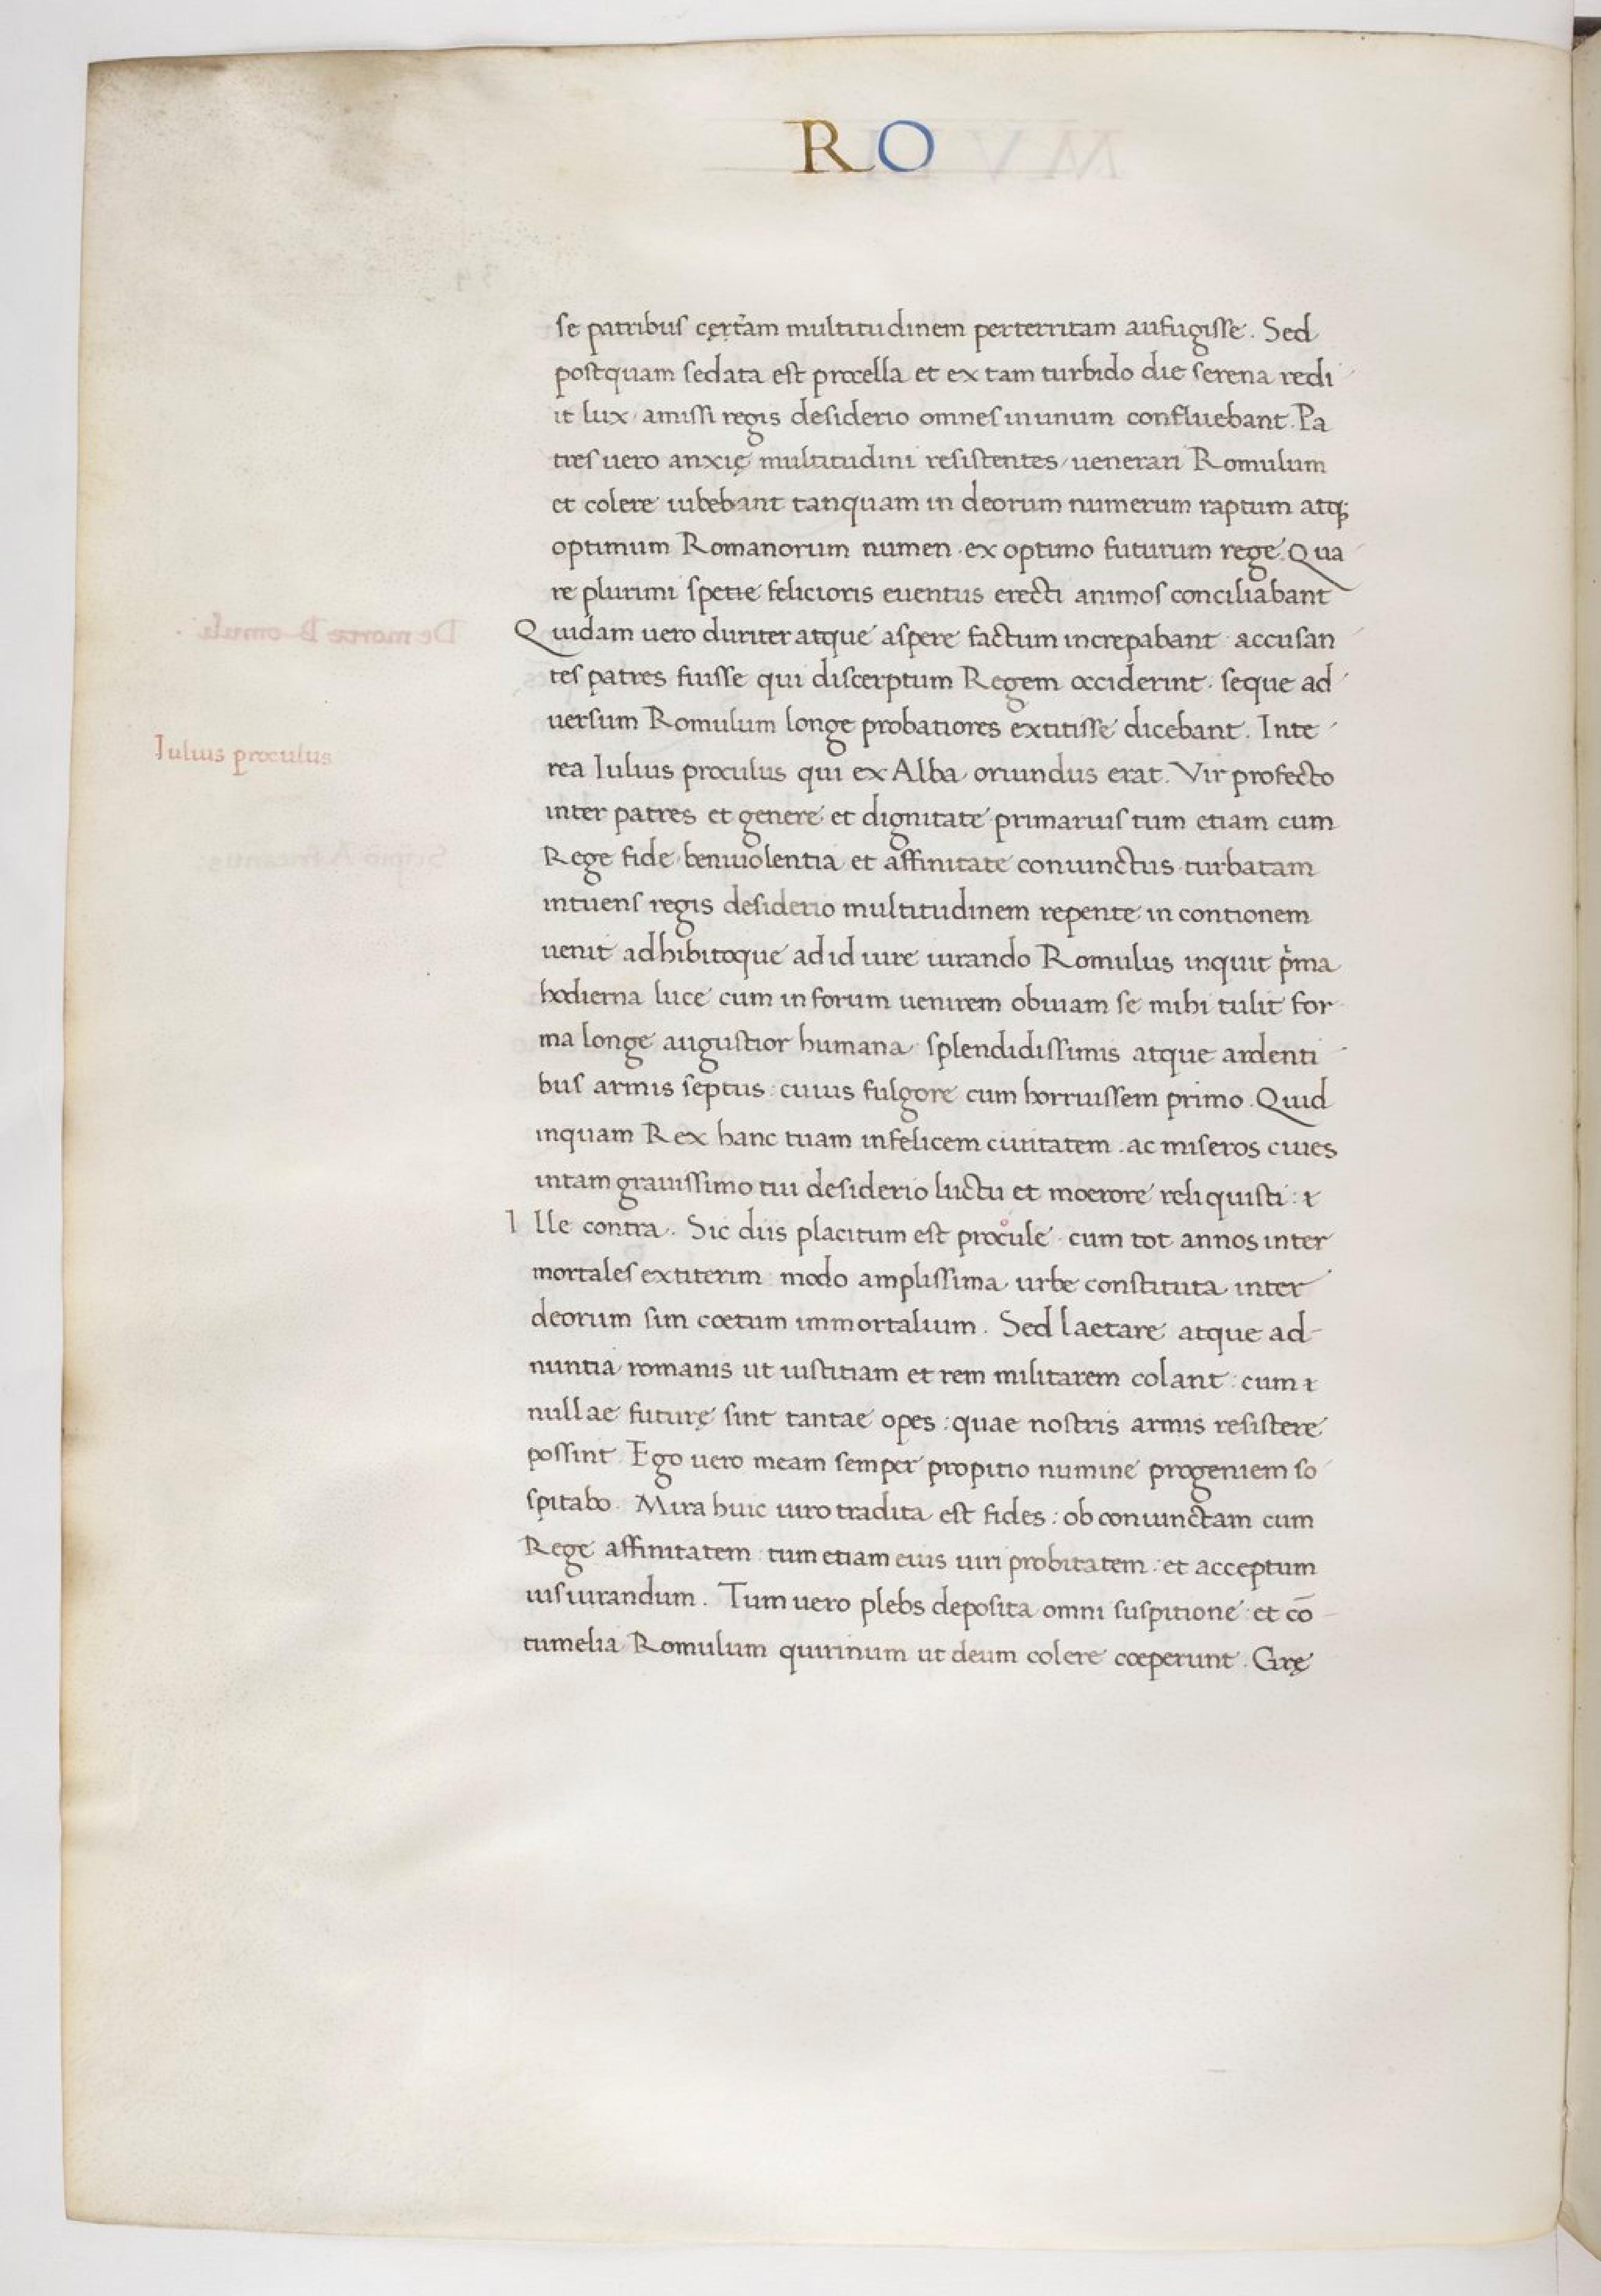 RO
se patribus cęrt̃am multitudinem perterritam aufugisse. Sed
postquam sedata est procella et ex tam turbido die serena redi
it lux amissi regis desiderio omnes in unum confluebant. Pa
tres uero anxię multitudini resistentes / uenerari Romulum
et colere iubebant tanquam in deorum numerum raptum atq;
optimum Romanorum numen. ex optimo futurum rege. Qua
re plurimi spetie felicioris euentus erecti animos conciliabant
Quidam uero duriter atque aspere factum increpabant accusan
tes patres fuisse qui discerptum Regem occiderint. seque ad
uersum Romulum longe probatiores extitisse dicebant. Inte
Iulius proculus
rea Iulius proculus qui ex Alba oriundus erat. Vir profecto
inter patres et genere et dignitate primarius tum etiam cum
Rege fide beniuolentia et affinitate coniunctus turbatam
intuens regis desiderio multitudinem repente in contionem
uenit adhibitoque ad id iure iurando Romulus inquit p̍ma
hodierna luce cum in forum uenirem obuiam se mihi tulit for
ma longe augustior humana splendidissimis atque ardenti
bus armis septus: cuius fulgore cum horruissem primo. Quid
inquam Rex hanc tuam infelicem ciuitatem. ac miseros ciues
in tam grauissimo tui desiderio luctu et moerore reliquisti:
Ille contra. Sic diis placitum est procule cum tot annos inter
mortales extiterim modo amplissima urbe constituta inter
deorum sim coetum immortalium. Sed laetare atque ad
nuntia romanis ut iustitiam et rem militarem colant: cum
nullae futurę sint tantae opes: quae nostris armis resistere
possint Ego uero meam semper propitio numine progeniem so
spitabo. Mira huic uiro tradita est fides: ob coniunctam cum
Rege affinitatem tum etiam eius uiri probitatem: et acceptum
iusiurandum. Tum uero plebs deposita omni suspitione et cō
tumelia Romulum quirinum ut deum colere coeperunt. Grę